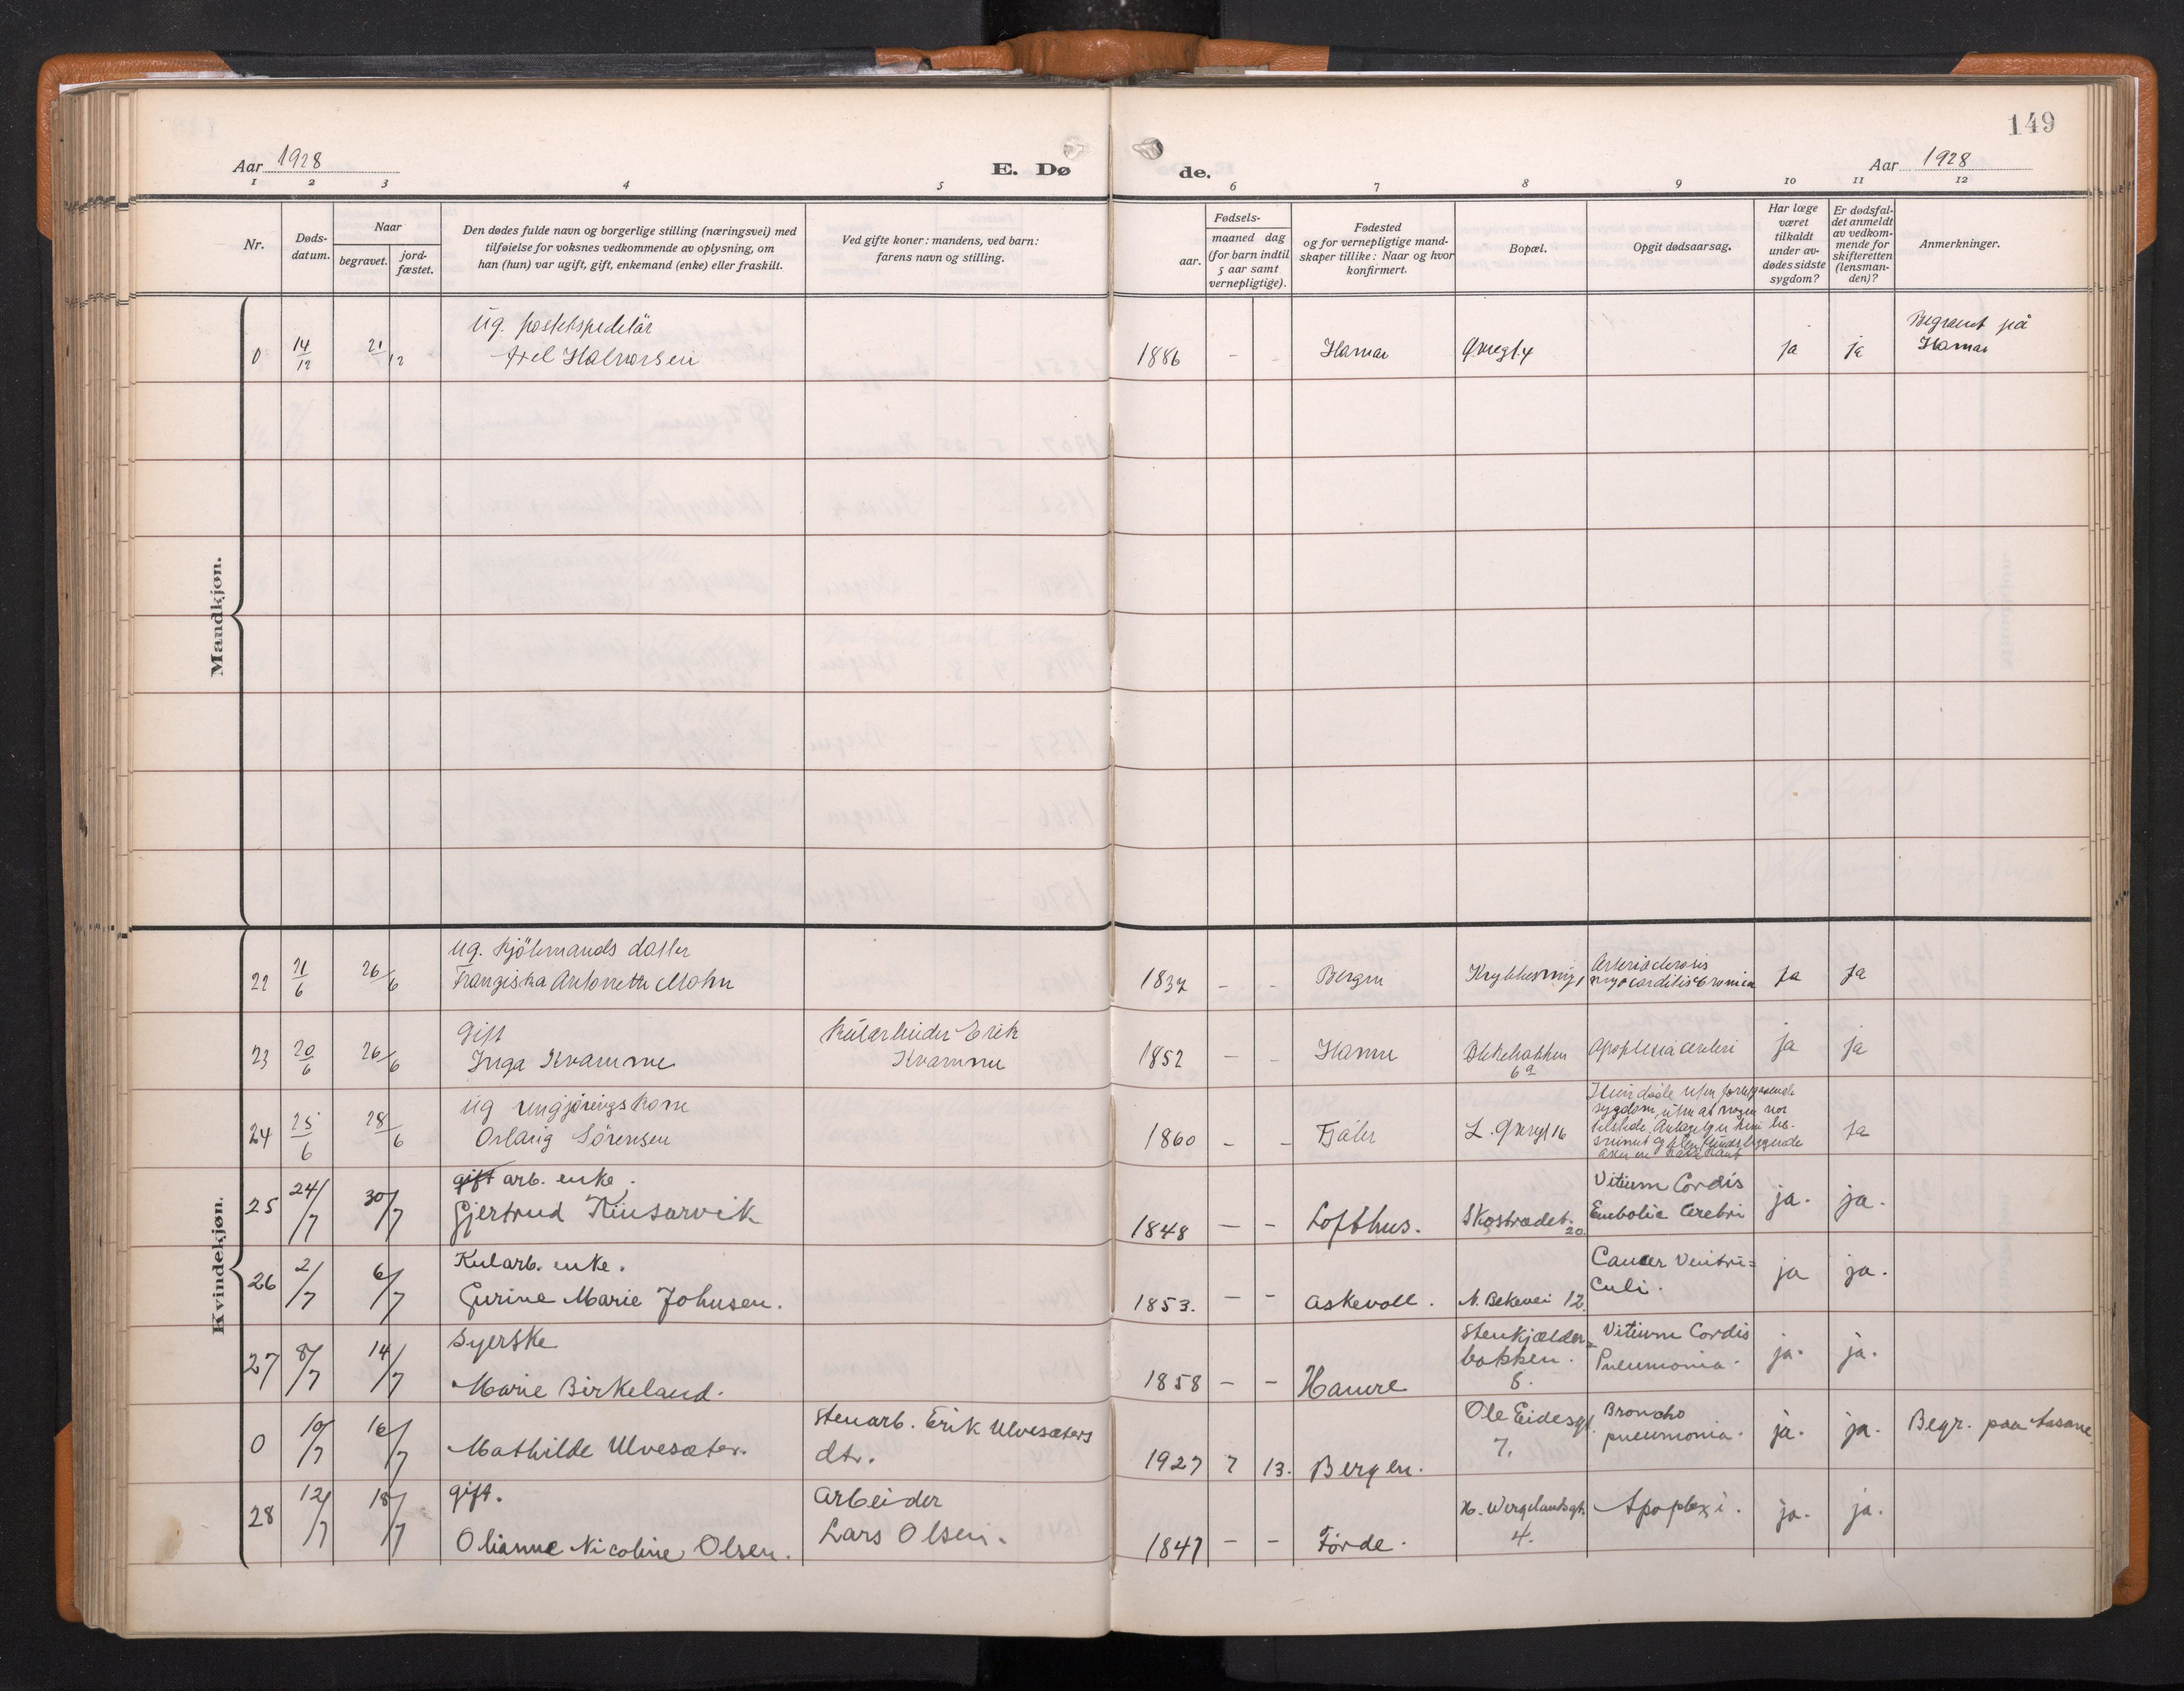 149
Aar 1928
E. Dø
de.
Aar 1928
1 2 3 4 5 6 7 8 9 10 11 12
Nr.
Døds-
datum.
Naar
begravet.
jord-
fæstet.
Den dødes fulde navn og borgerlige stilling (næringsvei) med
tilføielse for voksnes vedkommende av oplysning, om
han (hun) var ugift, gift, enkemand (enke) eller fraskilt.
Ved gifte koner: mandens, ved barn:
farens navn og stilling.
Fødsels-
aar.
maaned dag
(for barn indtil
5 aar samt
vernepligtige).
Fødested
og for vernepligtige mand-
skaper tillike: Naar og hvor
konfirmert.
Bopæl.
Opgit dødsaarsag.
Har læge
været
tilkaldt
under av-
dødes sidste
sygdom?
Er dødsfal-
det anmeldt
av vedkom-
mende for
skifteretten
(lensman-
den)?
Anmerkninger.
Mandkjøn.
Ug. postekspeditør
0 14/12 21/12 Axel Halvorsen 1886 - - Hamar ja ja
Begravet på
Hamar
Kvindekjøn.
Ug. Kjøbmands datter
22 21/6 26/6 Franziska Antonette Mohn 1837 - - Bergen
Arteriosclerosis
myocarditis cronica ja ja
Gift
23 20/6 26/6 Inga Kvamme
Erik
Kvamme
1852 - - Hamre Blekebakken
6a
Apoplexia cerebri ja ja
Ug rengjøringskone
24 25/6 28/6 Sörensen 1860 - - Fjaler L. 16
ja
gift arb. enke.
25 24/7 30/7 Gjertrud Kinsarvik 1848 - - Lofthus. Skostrædet.
20.
Vitium Cordis
Embolia Cerebri ja. ja.
Kularb. enke.
26 2/7 6/7 Gurine Marie Johnsen. 1853. - - Askevoll. N. Bekevei 12.
Cancer Ventri=
culi. ja ja.
Syerske
27 8/7 14/7 Marie Birkeland. 1858 - - Hamre
Stenkjælder=
bakken.
8.
Vitium Cordis
Pneumonia. ja. ja.
0 10/7 16/7 Mathilde Ulvesæter.
Stenarb. Erik Ulvesæters
dtr.
1927 7 13. Bergen.
Ole Eidesgt.
7.
Broncho
pneumonia. ja. ja. Begr. paa Aasane.
gift.
28 12/7 18/7 Olianne Nicoline Olsen.
Arbeider
Lars Olsen.
1847 - - Førde.
H. Wergelandsgt.
4.
Apoplexi. ja. ja.